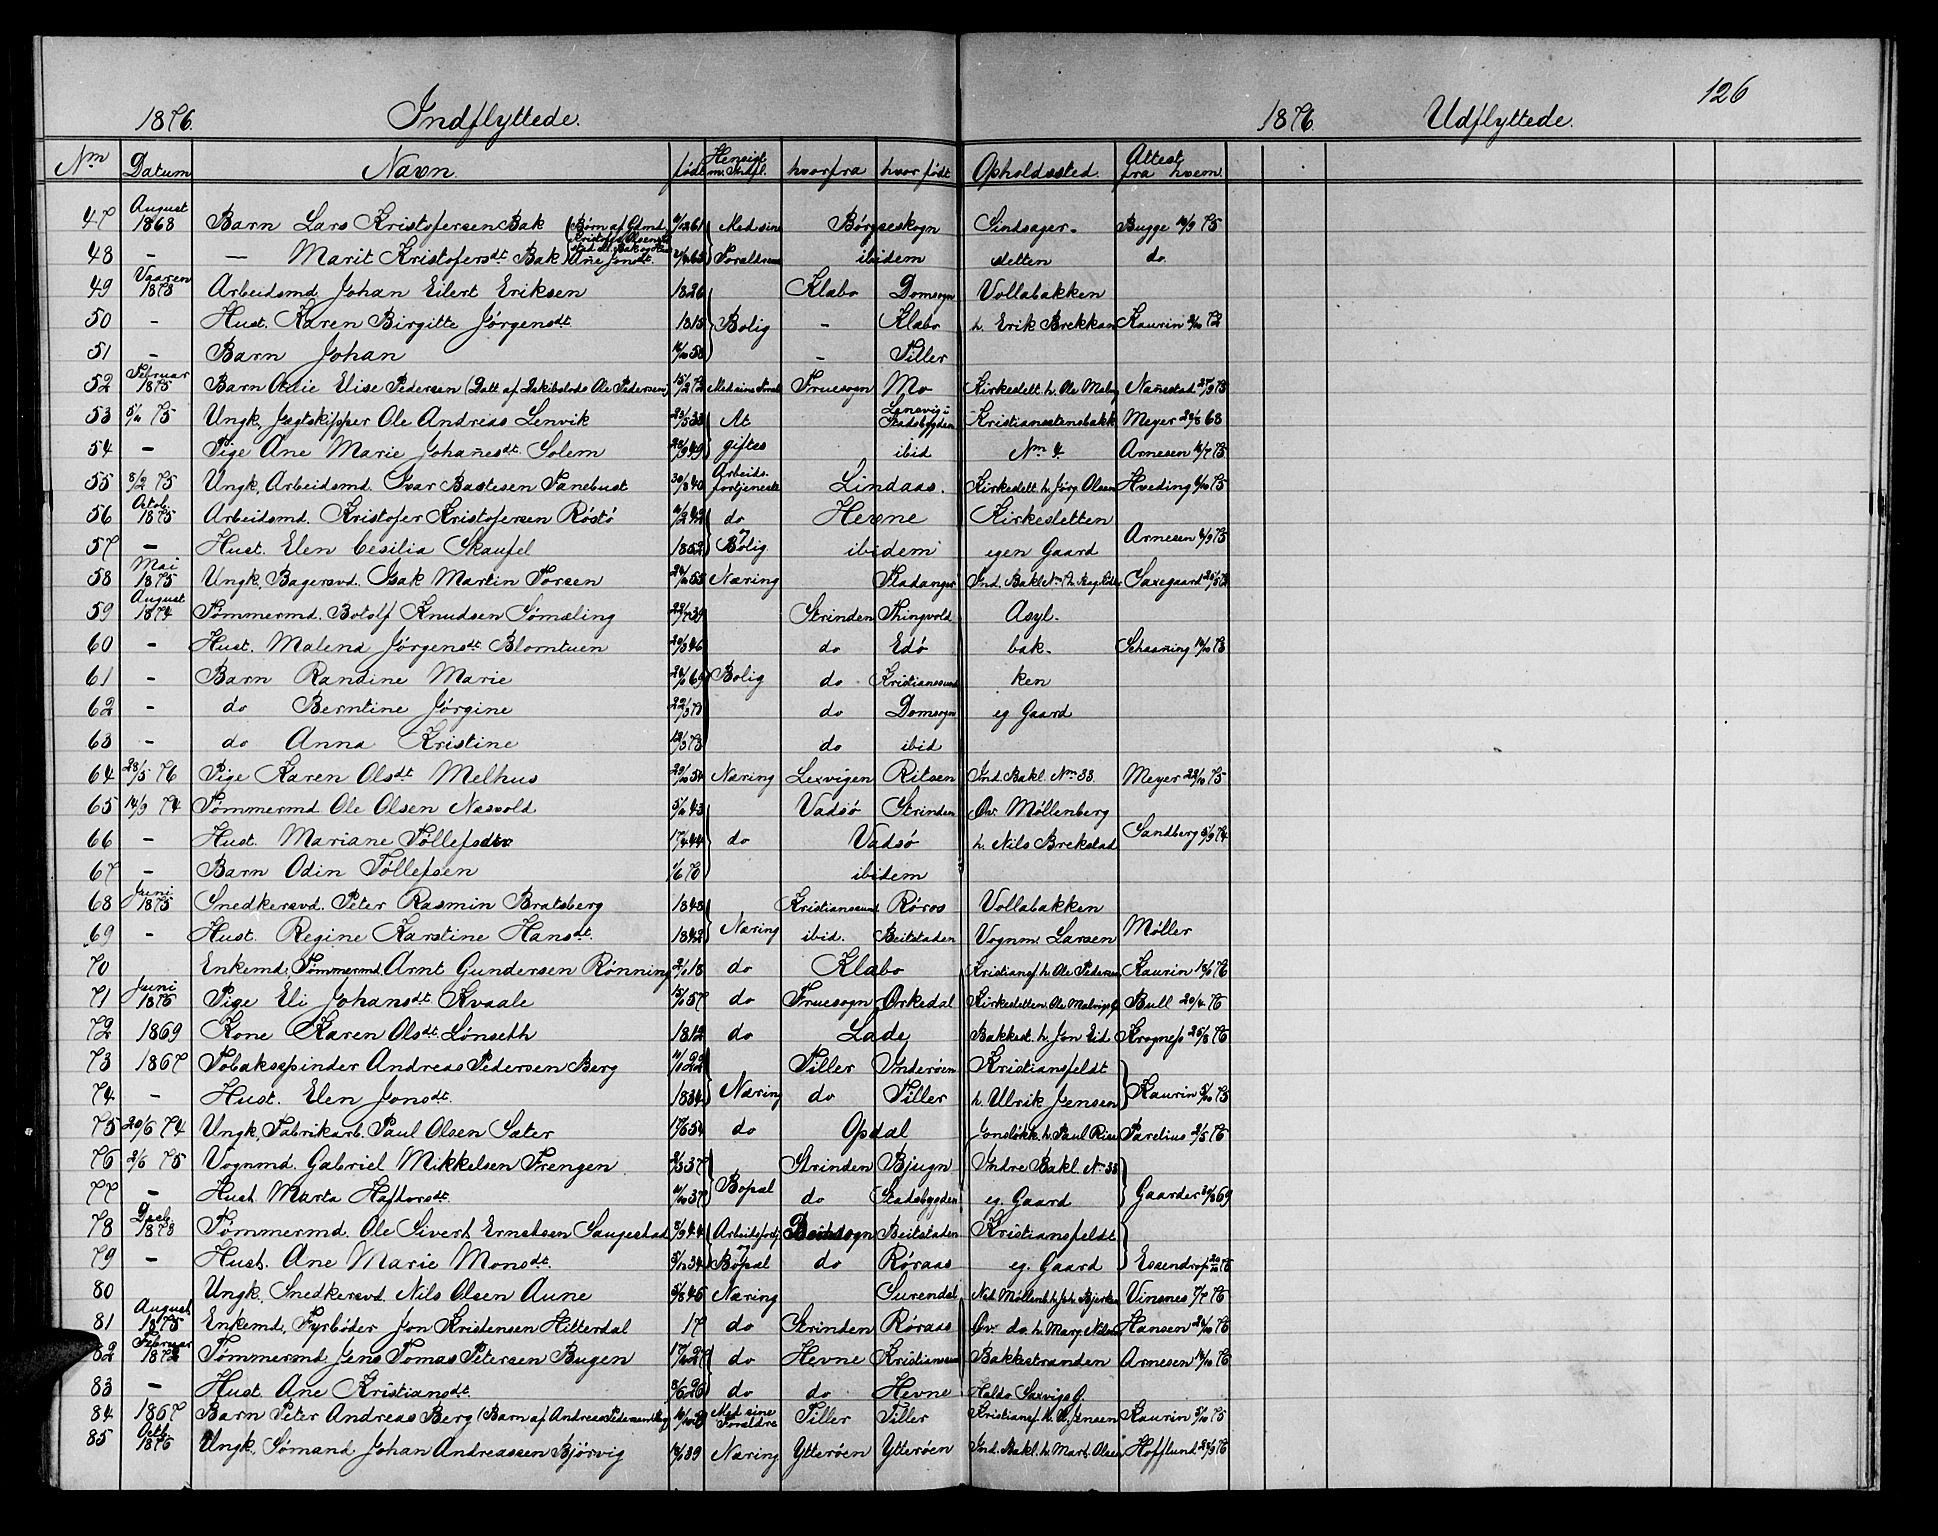 126
1876. Indflyttede. 1876. Udflyttede.
Nm Datum Navn født Hensigt m. Indfl. hvorfra hvor født Opholdssted. Attest fra hvem.
47 August 1868 Barn Lars Kristofersen Bak (Børn af Gdmd. 61 Med sine Børseskogn Lindager- Bugge 75
48 - — Marit Kristofersdt. Bak Ane Jonsdt. 63 Foraldre ibidem sletten do.
49 Vaaren 1873 Arbeidsmd. Johan Eilert Eriksen 1826 Klabo Domsogn Vollabakken
50 - Hust. Karen Birgitte Jørgensdt. 1815 Bolig - Klabo h. Erik Brekkan Kaurin 72
51 - Barn Johan 58 - Tiller
52 Februar 1875 Barn Anie Elise Pedersen (Datt af Ole Pedersen) 15/2 72 Med sine Forald Fruesogn Mo Kirkeslett. h. Ole Malvig Nanestad 73
53 75 Ungk. Jægtskipper Ole Andreas Lenvik 33 At Lensvig i Stadsbygden Kristianstensbakk Meyer 68
54 - Pige Ane Marie Johanesdt. Solem 49 giftes ibid Nm 4 Arnesen 75
55 3/2 75 Ungk. Arbeidsmd. Ivar Bastesen Tanebust 40 Arbeidsfortjeneste Lindaas. Kirkeslett. h. Jørg. Olsen Hveding 75
56 Octob. 1875 Arbeidsmd. Kristofer Kristofersen Røstø 42 do Hevne Kirkesletten
57 - Hust. Elen Cesilia Skaufel 1852 Bolig ibidem egen Gaard Arnesen 75
58 Mai 1875 Ungk. Bagersvd. Isak Martin Torsen 55 Næring Stadanger Ind. Bakl. Saxegaard 72
59 August 1874 Tømmermd. Botolf Knudsen Sømeling 39 Strinden Thingvold Asyl-
60 - Hust. Malena Jørgensdt. Blomtuen 46 do Edø bak- Schanning 73
61 - Barn Randine Marie 69 Bolig do Kristianssund ken
62 - do Berntine Jørgine do Domsogn eg Gaard
63 - do Anna Kristine 73 do ibid
64 28/5 76 Pige Karen Olsdt. Melhus 54 Næring Lexvigen Ritsen Ind. Bakl. Nm 33. Meyer 75
65 14/9 74 Tømmermd. Ole Olsen Næsvold 43 Vadsø Strinden Øv. Møllenberg
66 - Hust. Mariane Tøllefsdtr 17/4 44 do Vadsø h. Nils Brekstad Sandberg 74
67 - Barn Odin Tøllefsen ibidem
68 Juni 1875 Snedkersvd. Peter Rasmin Bratsberg 1848 Kristianssund Røros Vollabakken
69 - Hust. Regine Karstine Hansdt. 1842 Næring ibid. Beitstaden Vognm. Larsen Møller
70 Enkemd. Tømmermd. Arnt Gundersen Rønning 2/1 18 do Klabo Kristiansf. h. Ole Pedersen Kaurin 76
71 Juni 1876 Pige Eli Johansdt. Kvaale 57 do Fruesogn Ørkedal Kirkesletten Ole Malvigs G. Bull 20/4 76
72 1869 Kone Karen Olsdt. Lønseth 1812 do Lade Bakkest. h. Jon Eid Krogness 76
73 1867 Tobaksspinder Andreas Pedersen Berg 22 Tiller Inderøen Kristiansfeldt
74 - Hust. Elen Jonsdt. 1834 Næring do Tiller h. Ulrik Jensen Kaurin 5/10 75
75 20/6 74 Ungk. Fabrikarb. Paul Olsen Sæter 17/6 54 do Opdal Jonsløkk. h. Paul Rise Parelius 2/5 76
76 2/6 75 Vognmd. Gabriel Mikkelsen Frengen 37 Strinden Bjugn Indre Bakl. Nr 33
77 - Hust. Marta Haftorsdt. 37 Bopæl do Stadsbygden eg. Gaard Gaarder 69
78 Decb. 1873 Tømmermd. Ole Sivert Ernstsen Saugestad 44 Arbeidsfortj. og Beitstaden Kristiansfeldt
79 - Hust. Ane Marie Monsdt. 34 Bopæl do Røraas eg. Gaard Essendrop 76
80 Ungk. Snedkersvd. Nils Olsen Aune 5/8 46 Næring Surendal Ned. Møllenb. h. Joh. Bjerken Vinsnes 7/7 76
81 August 1875 Enkemd. Fyrbøder Jon Kristensen Hitterdal 17 do Strinden Røraas Øv. do. h. Marg. Nilsen Hansen 76
82 Februar 1872 Tømmermd. Jens Tomas Petersen Bugen 27 do Hevne Kristianssund Bakkestranden Arnesen 76
83 - Hust. Ane Kristiansdt. 26 do do Hevne Haldo Saxvigs G.
84 1867 Barn Peter Andreas Berg (Barn af Andreas Pedersen Berg) Med sine Foraldre Tiller Tiller Kristiansf. h. U. Jensen Kaurin 5/10 75
85 Octb. 1876 Ungk. Sømand Johan Andreassen Bjørvig 39 Næring Ytterøen Ytterøen Ind. Bakl. h. Mart. Olsen Hofflund 76